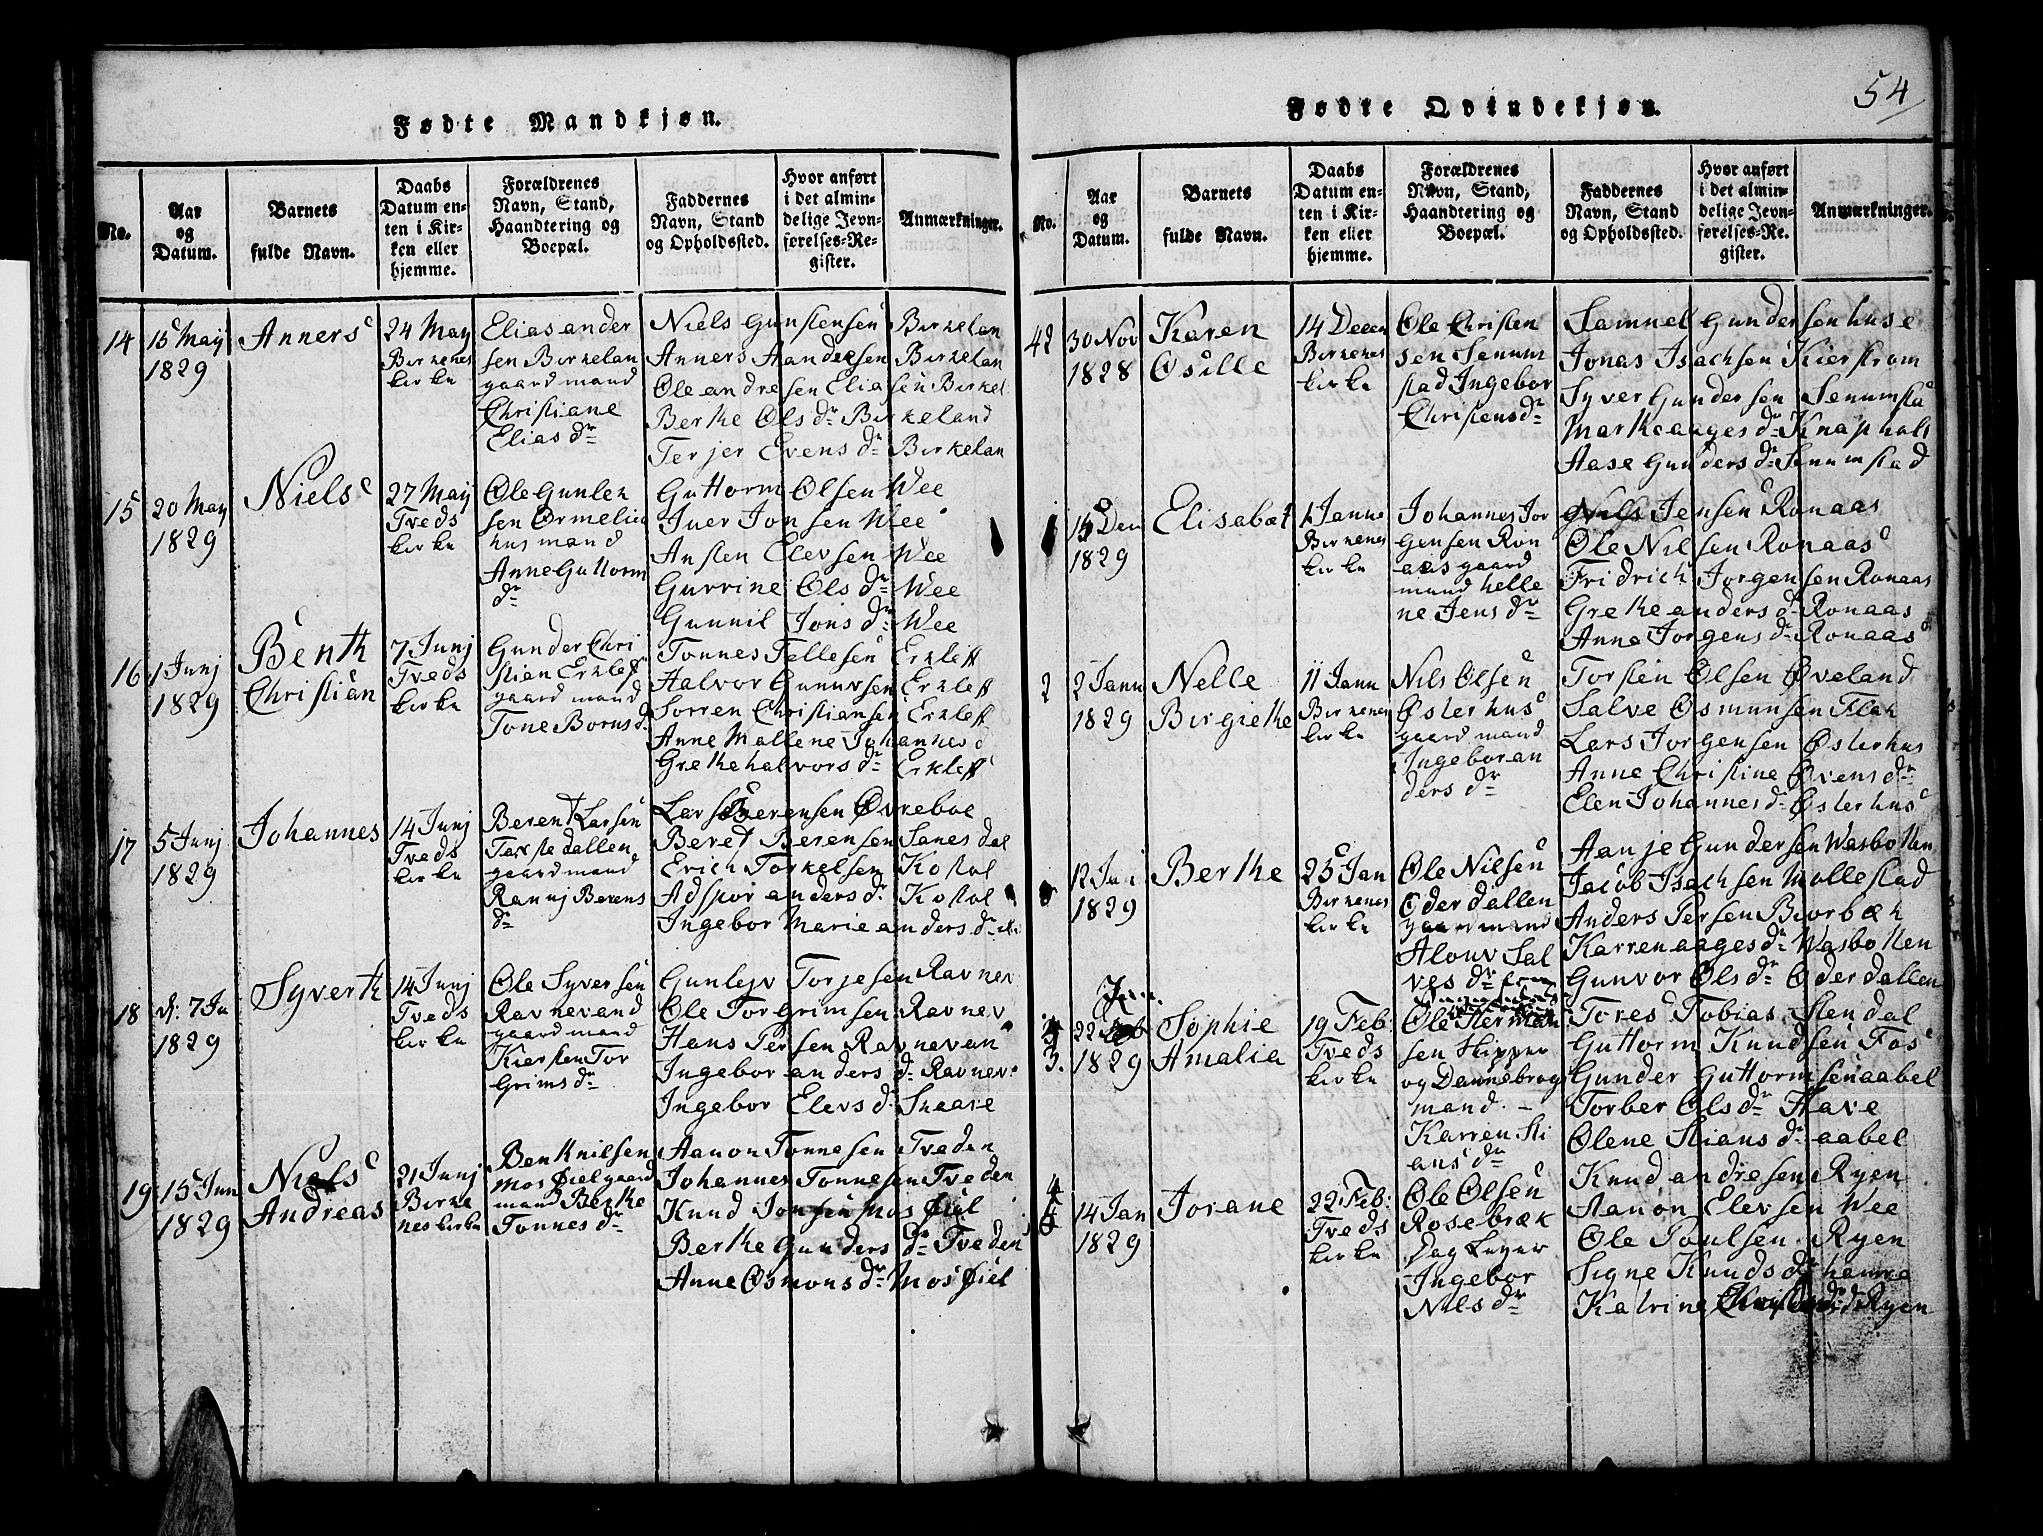 54
Fødte Mandkjøn.
No.
Aar og Datum.
Barnets fulde Navn.
Daabs Datum enten i Kirken eller hjemme.
Forældrenes Navn, Stand, Haandtering og Boepæl.
Faddernes Navn, Stand og Opholdssted.
Hvor anført i det almindelige Jevnførelses-Register.
Anmærkninger.
14
15 May
1829
Anners
24 May
Birkenes
kirke
Elias ander
sen Birkelan
gaard mand
Christiane
Elias dr
Niels Gunstensen Birkelan
Anners Aandersen Birkelan
Ole andresen Eliasen Birkel
Berthe Ols dr Birkeland
Terjer Evens dr Birkelan
15
20 May
1829
Niels
27 May
Tveds
kirke
Ole Gunlek
sen Ormelid
husmand
Anne Guttorm
dr
Guttorm Olsen Wee
Iver Jonsen Wee
Ansten Elevsen Wee
Gurrine Ols dr Wee
Gunnil Jons dr Wee
16
1 Junj
1829
Benth
Christian
7 Junj
Tveds
kirke
Gunder Chri
stian Erkleff
gaard mand
Tone Borns d.
Tonnes Tellesen Erkleff
Halvor Gunnvsen Erkleff
Sorren Christiansen Erkleff
Anne Mallene Johannes d
Grethe halvors dr Erkleff
17
5 Junj
1829
Johannes
14 Junj
Tveds
kirke
Berent Larsen
Tarstedallen
gaard mand
Rannj Berens
dr
Lars Berensen Øvreboe
Beret Berensen Sanesdal
Erich Torkelsen Kostol
Adspor anders dr Kostol
Ingebor Marie anders dr
18
d. 7 Ju
1829
Syverth
14 Junj
Tveds
kirke
Ole Syversen
Ravnevand
gaard mand
Kiersten Tor
Grims dr
Gunlejv Torjesen Ravnev
Ole Torgrimsen Ravnev
Hans Persen Ravnevan
Ingebor anders d. Ravnev
Ingebor Elevs d. Skaare
19
15 Jun
1829
Niels
Andreas
21 Junj
Birke
nes kirke
Benth nilsen
Mosfiel gaard
mand Berthe
Tonnes dr
Aanon Tonnesen Tveden
Johannes Tonnesen Tveden
Knud Jonsen Mosfiel
Berthe Gunders dr Tveden
Anne Osmons dr Mosfiel
Fødte Qvindekjøn.
No.
Aar og Datum.
Barnets fulde Navn.
Daabs Datum enten i Kirken eller hjemme.
Forældrenes Navn, Stand, Haandtering og Boepæl.
Faddernes Navn, Stand og Opholdssted.
Hvor anført i det almindelige Jevnførelses-Register.
Anmærkninger.
42
30 Nov
1828
Karen
Osille
14 Decen
Birkenes
kirke
Ole Christen
sen Senum
stad Ingebor
Christens dr
Samuel Gundersen huse
Jonas Isachsen Kierstrøm
Syver Gundersen Senumsta
Marthe aages dr Knapholt
Aase Gunders dr Senumstad
1
15 Dec
1829
Elisabet
1 Janne
Birkenes
kirke
Johannes Jor
gensen Ron
aas gaard
mand helle
ne Jens dr
Nils Jensen Ronaas
Ole Nilsen Ronaas
Fridrich Jorgensen Ronaas
Grethe anders d. Ronaas
Anne Jorgens d. Ronaas
2
2 Jann
1829
Nelle
Birgiethe
11 Jann
Birkenes
kirke
Nils Olsen
Østerhus
gaard mand
Ingebor an
ders dr
Torsten Olsen Øveland
Salve Osmunsen Flak
Lars Jorgensen Østerhus
Anne Christine Ovens dr
Elen Johannes d. Østerhus
12 Jan
1829
Berthe
25 Jan
Birkenes
kirke
Ole Nilsen
Oderdallen
gaard mand
Alouv Sal
ves dr
Aanje Gundersen Wasbotten
Jacob Isachsen Mollestad
Anders Persen Biorbæk
Karren aages dr Wasbotten
Gunvor Ols dr Oderdallen
3.
Jan.
22 Feb
1829
Sophie
Amalia
19 Feb:
Tveds
kirke
Ole Herman
sen Skipper
og Dannebrog
mand. -
Karren Sti
ans dr
Tores Tobias Stendal
Guttorm Knudsen Fos
Gunder Guttormsen aabel
Torber Ols dr Have
Olene Stians d. aabel
4
14 Jan
1829
Jorane
22 Feb:
Tveds
kirke
Ole Olsen
Rosebræk
Dag Leyer
Ingebor
Nils dr
Knud andresen Ryen
Aanon Elevsen Wee
Ole Poulsen Ryen
Signe Knuds dr
Katrine Ryen